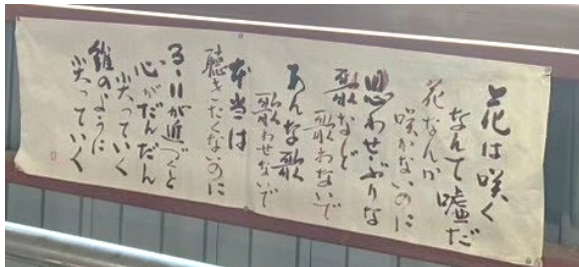 花は咲く
なんて嘘だ
花なんか
咲かないのに
思わせぶりな
歌など
歌わないで
あんな歌
歌わせないで
本当は
聴きたくないのに
3・11が近づくと
心がだんだん
尖っていく
錐のように
尖っていく